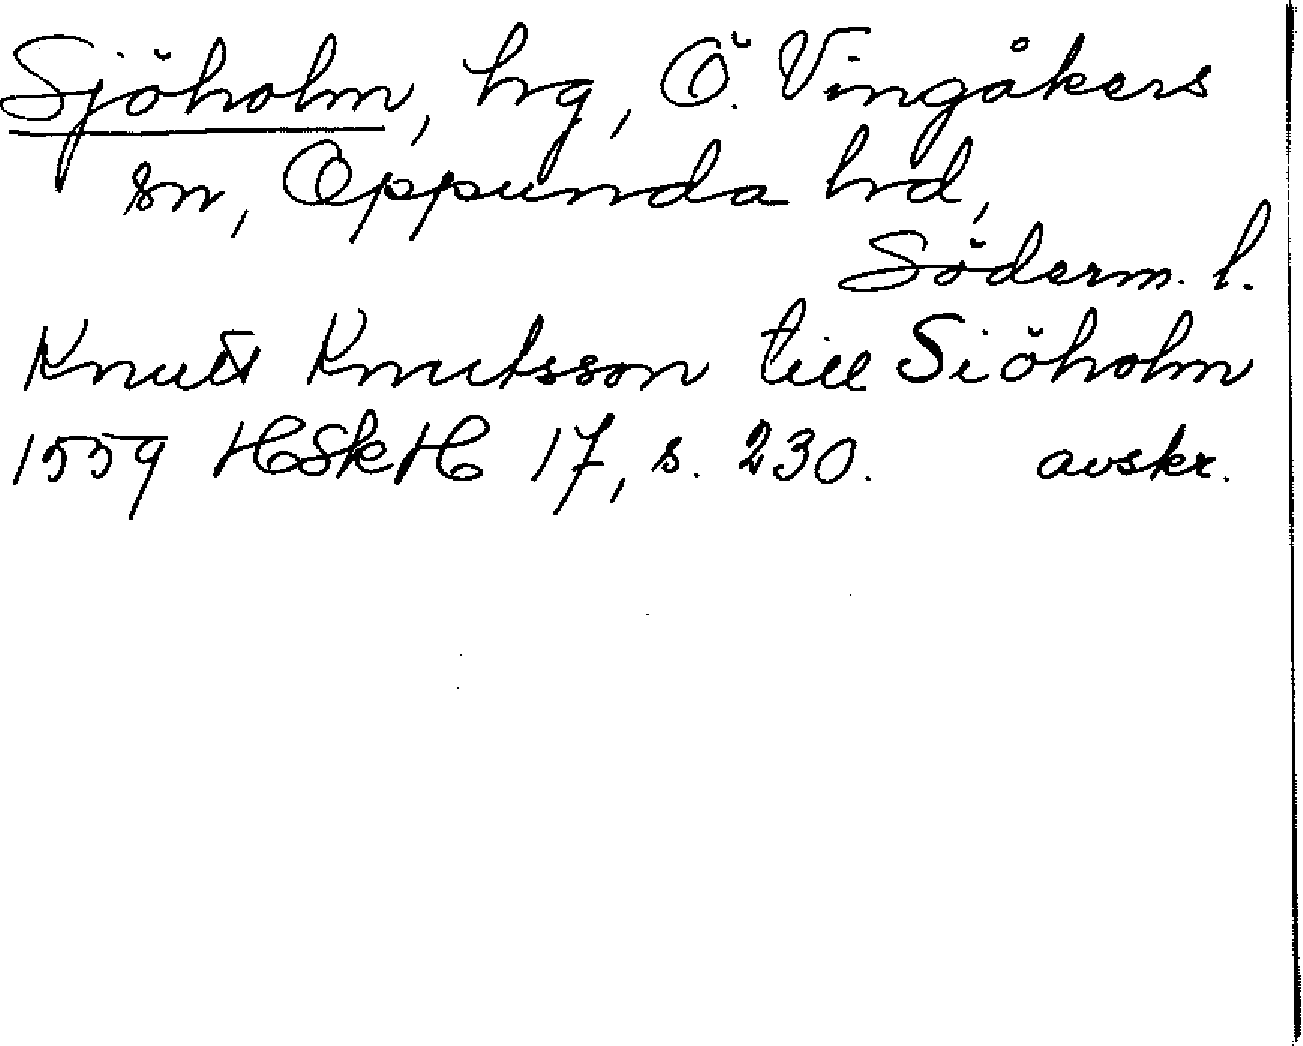 Sjöholm, hg, Ö. Vingåkers
sn, Oppunda hd,
Söderm. l.
Knutt Knutsson till Siöholm
1559 HSkH 17, s. 230. avskr.